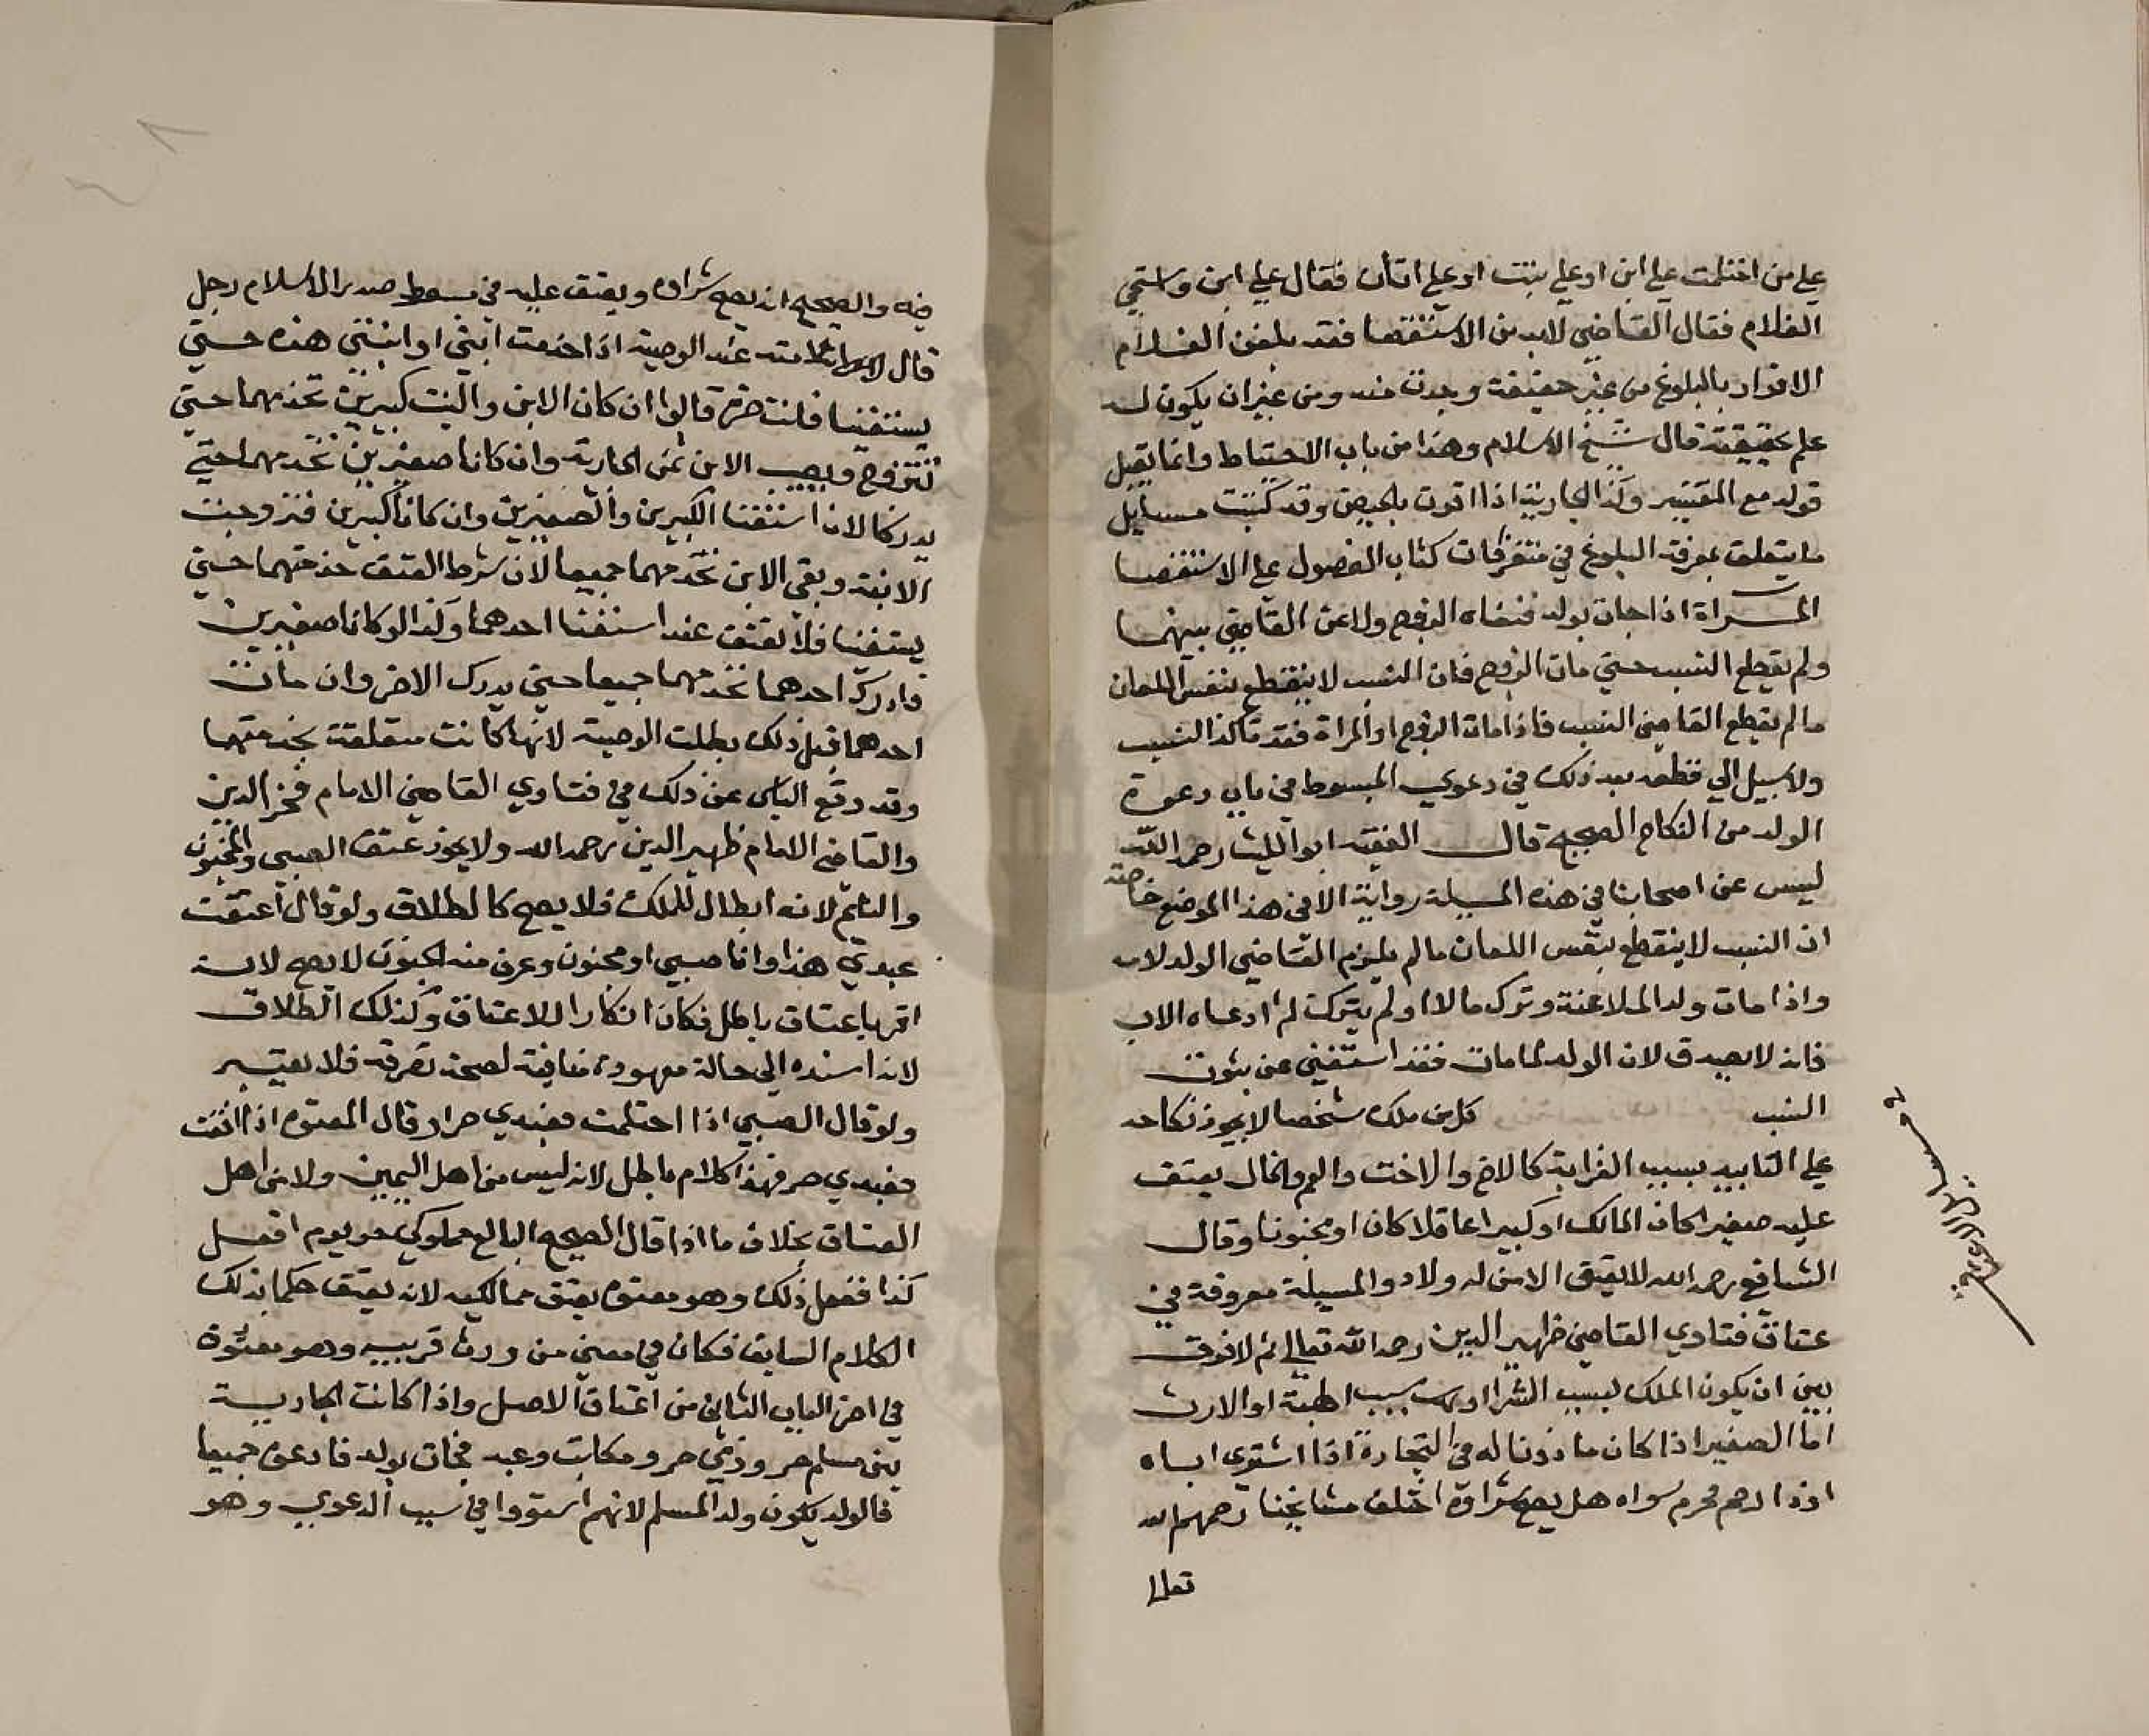 على من احتلمت على ابن او على بنت او على اتان فقال على ابن واستحيى
الغلام فقال القاضي لابد من الاستقصا فقد يلقن الغلام
الاقرار بالبلوغ من غير حقيقة وجدت منه ومن غير ان يكون له
علم بحقيقته قال شيخ الاسلام وهذا من باب الاحتياط وانما يقبل
قوله مع التفسير وكذا الجارية اذا اقرت بالحيض وقد كتبت مسايل
ما يتعلق بمعرفة البلوغ في متفرقات كتاب الفصول على الاستقصا
المراة اذا جات بولد فنفاه الزوج ولاعن القاضي بينهما
ولم يقطع النسب حتى مات الزوج فان النسب لا ينقطع بنفس اللعان
ما لم يقطع القاضي النسب فاذا مات الزوج او المراة فقد تاكد النسب
ولا سبيل الى قطعه بعد ذلك في دعوى المبسوط في باب دعوة
الولد من النكاح الصحيح قال الفقيه ابو الليث رحمه الله
ليس عن اصحابنا في هذه المسيلة رواية الا في هذا الموضع خاصة
ان النسب لا ينقطع بنفس اللعان ما لم يلزم القاضي الولد لامه
واذا مات ولد الملاعنة وترك مالا او لم يترك ثم ادعاه الاب
فانه لا يصدق لان الولد لما مات فقد استغنى عن ثبوت
النسب كل من ملك شخصا لا يجوز نكاحه
على التابيد بسبب القرابة كالاخ والاخت والعم والخال يعتق
عليه صغيرا كان المالك او كبيرا عاقلا كان او مجنونا وقال
الشافعي رحمه الله لا يعتق الا من له ولاد والمسيلة معروفة في
عتاق فتاوي القاضي ظهير الدين رحمه الله تعالى ثم لا فرق
بين ان يكون الملك بسبب الشرا او بسبب الهبة او الارث
اما الصغير اذا كان ماذونا له في التجارة اذا اشترى اباه
او ذا رحم محرم سواه هل يصح شراوه اختلف مشايخنا رحمهم الله
تعالى
في مسايل الاعتاق
فيه والصحيح انه يصح شراوه ويعتق عليه في مبسوط صدر الاسلام رجل
قال لامته عند الوصية اذا خدمت ابني او ابنتي هذه حتى
يستغنيا فانت حرة قالوا ان كان الابن والبنت كبيرين تخدمهما حتى
تتزوج ويصيب الابن ثمن الجارية وان كانا صغيرين تخدمهما حتى
يدركا لان استغنا الكبيرين والصغيرين وان كانا كبيرين فتزوجت
الابنة وبقي الابن تخدمهما جميعا لان شرط العتق خدمتهما حتى
يستغنيا فلا تعتق عند استغنا احدهما وكذا لو كانا صغيرين
فادرك احدهما تخدمهما جميعا حتى يدرك الاخر وان مات
احدهما قبل ذلك بطلت الوصية لانها كانت متعلقة بخدمتهما
وقد وقع الياس عن ذلك في فتاوي القاضي الامام فخر الدين
والقاضي الامام ظهير الدين رحمه الله ولا يجوز عتق الصبي والمجنون
والنايم لانه ابطال للملك فلا يصح كالطلاق ولو قال اعتقت
عبدي هذا وانا صبي او مجنون وعرف منه الجنون لا يصح لانه
اقر باعتاق باطل فكان انكارا للاعتاق وكذلك الطلاق
لانه اسنده الى حالة معهودة منافية لصحة تصرفه فلا يعتبر
ولو قال الصبي اذا احتلمت فعبدي حر او قال المعتوه اذا افقت
فعبدي حر فهذا كلام باطل لانه ليس من اهل اليمين ولا من اهل
العتاق بخلاف ما اذا قال الصحيح البالغ مملوكي حر يوم افعل
كذا ففعل ذلك وهو معتوه يعتق مماليكه لانه يعتق حكما بذلك
الكلام السابق فكان في معنى من ورث قريبه وهو معتوه
في اخر الباب الثاني من اعتاق الاصل واذا كانت الجارية
بين مسلم حر وذمي حر ومكاتب وعبد فجات بولد فادعوه جميعا
فالولد يكون ولد المسلم لانهم استووا في سبب الدعوى وهو